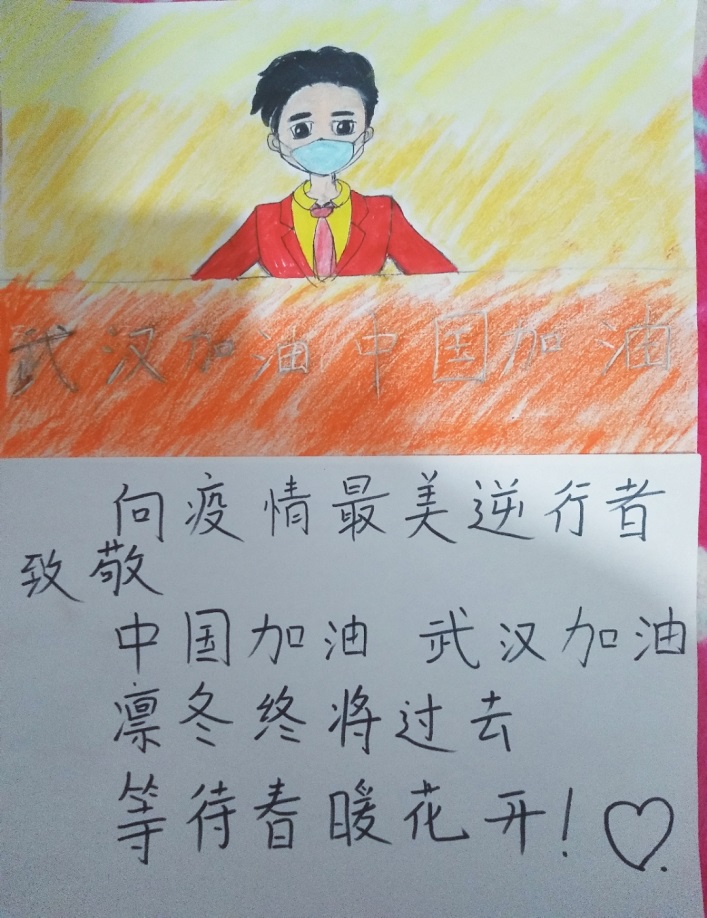 武汉加油中国加油
向疫情最美逆行者
致敬
中国加油 武汉加油
凛冬终将过去
等待春暖花开!